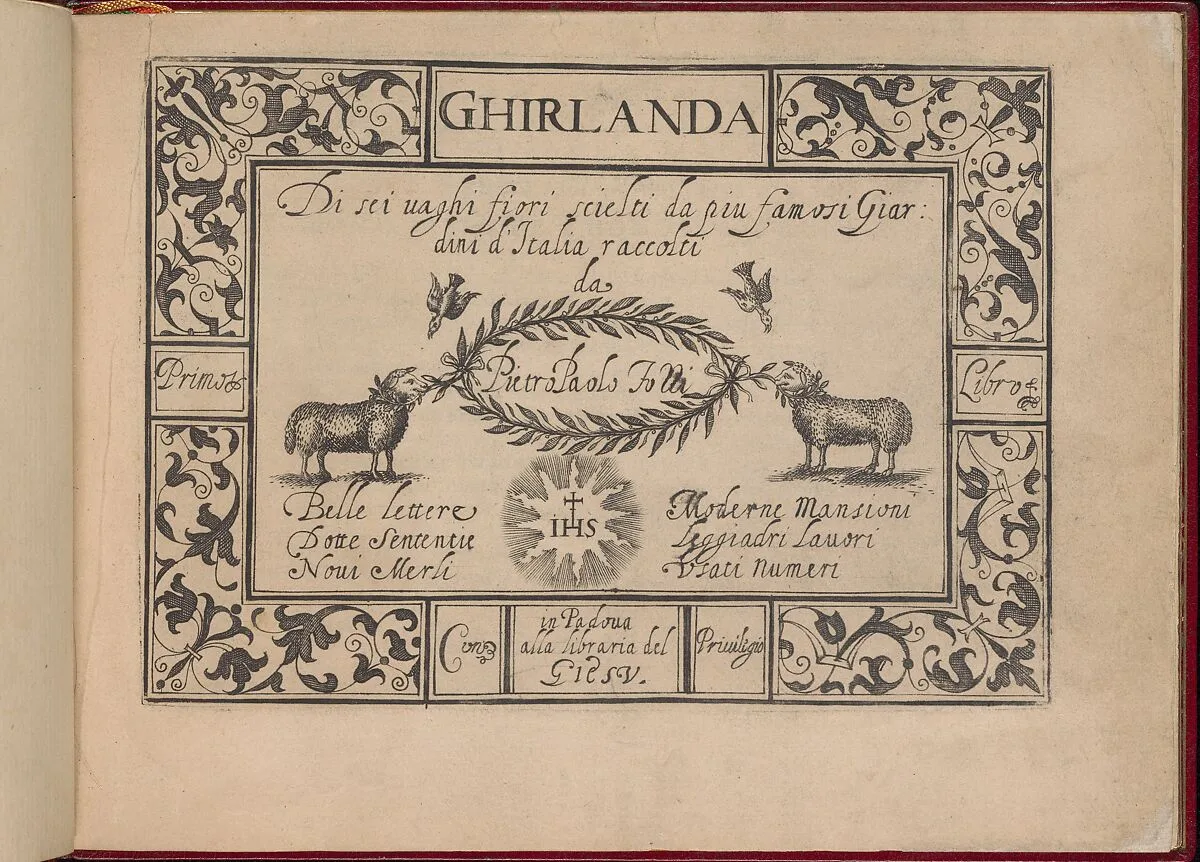 GHIRLANDA
Di sei uaghi fiori scielti da piu famosi Giar:
dini d'Italia raccolti
da
Pietro Paolo Tozzi
Primo
Libro
Belle lettere
Dotte Sententie
Noui Merli
IHS
Moderne Mansioni
Leggiadri Lauori
Vsati Numeri
Con
in Padoua
alla libraria del
Giesv.
Priuilegio